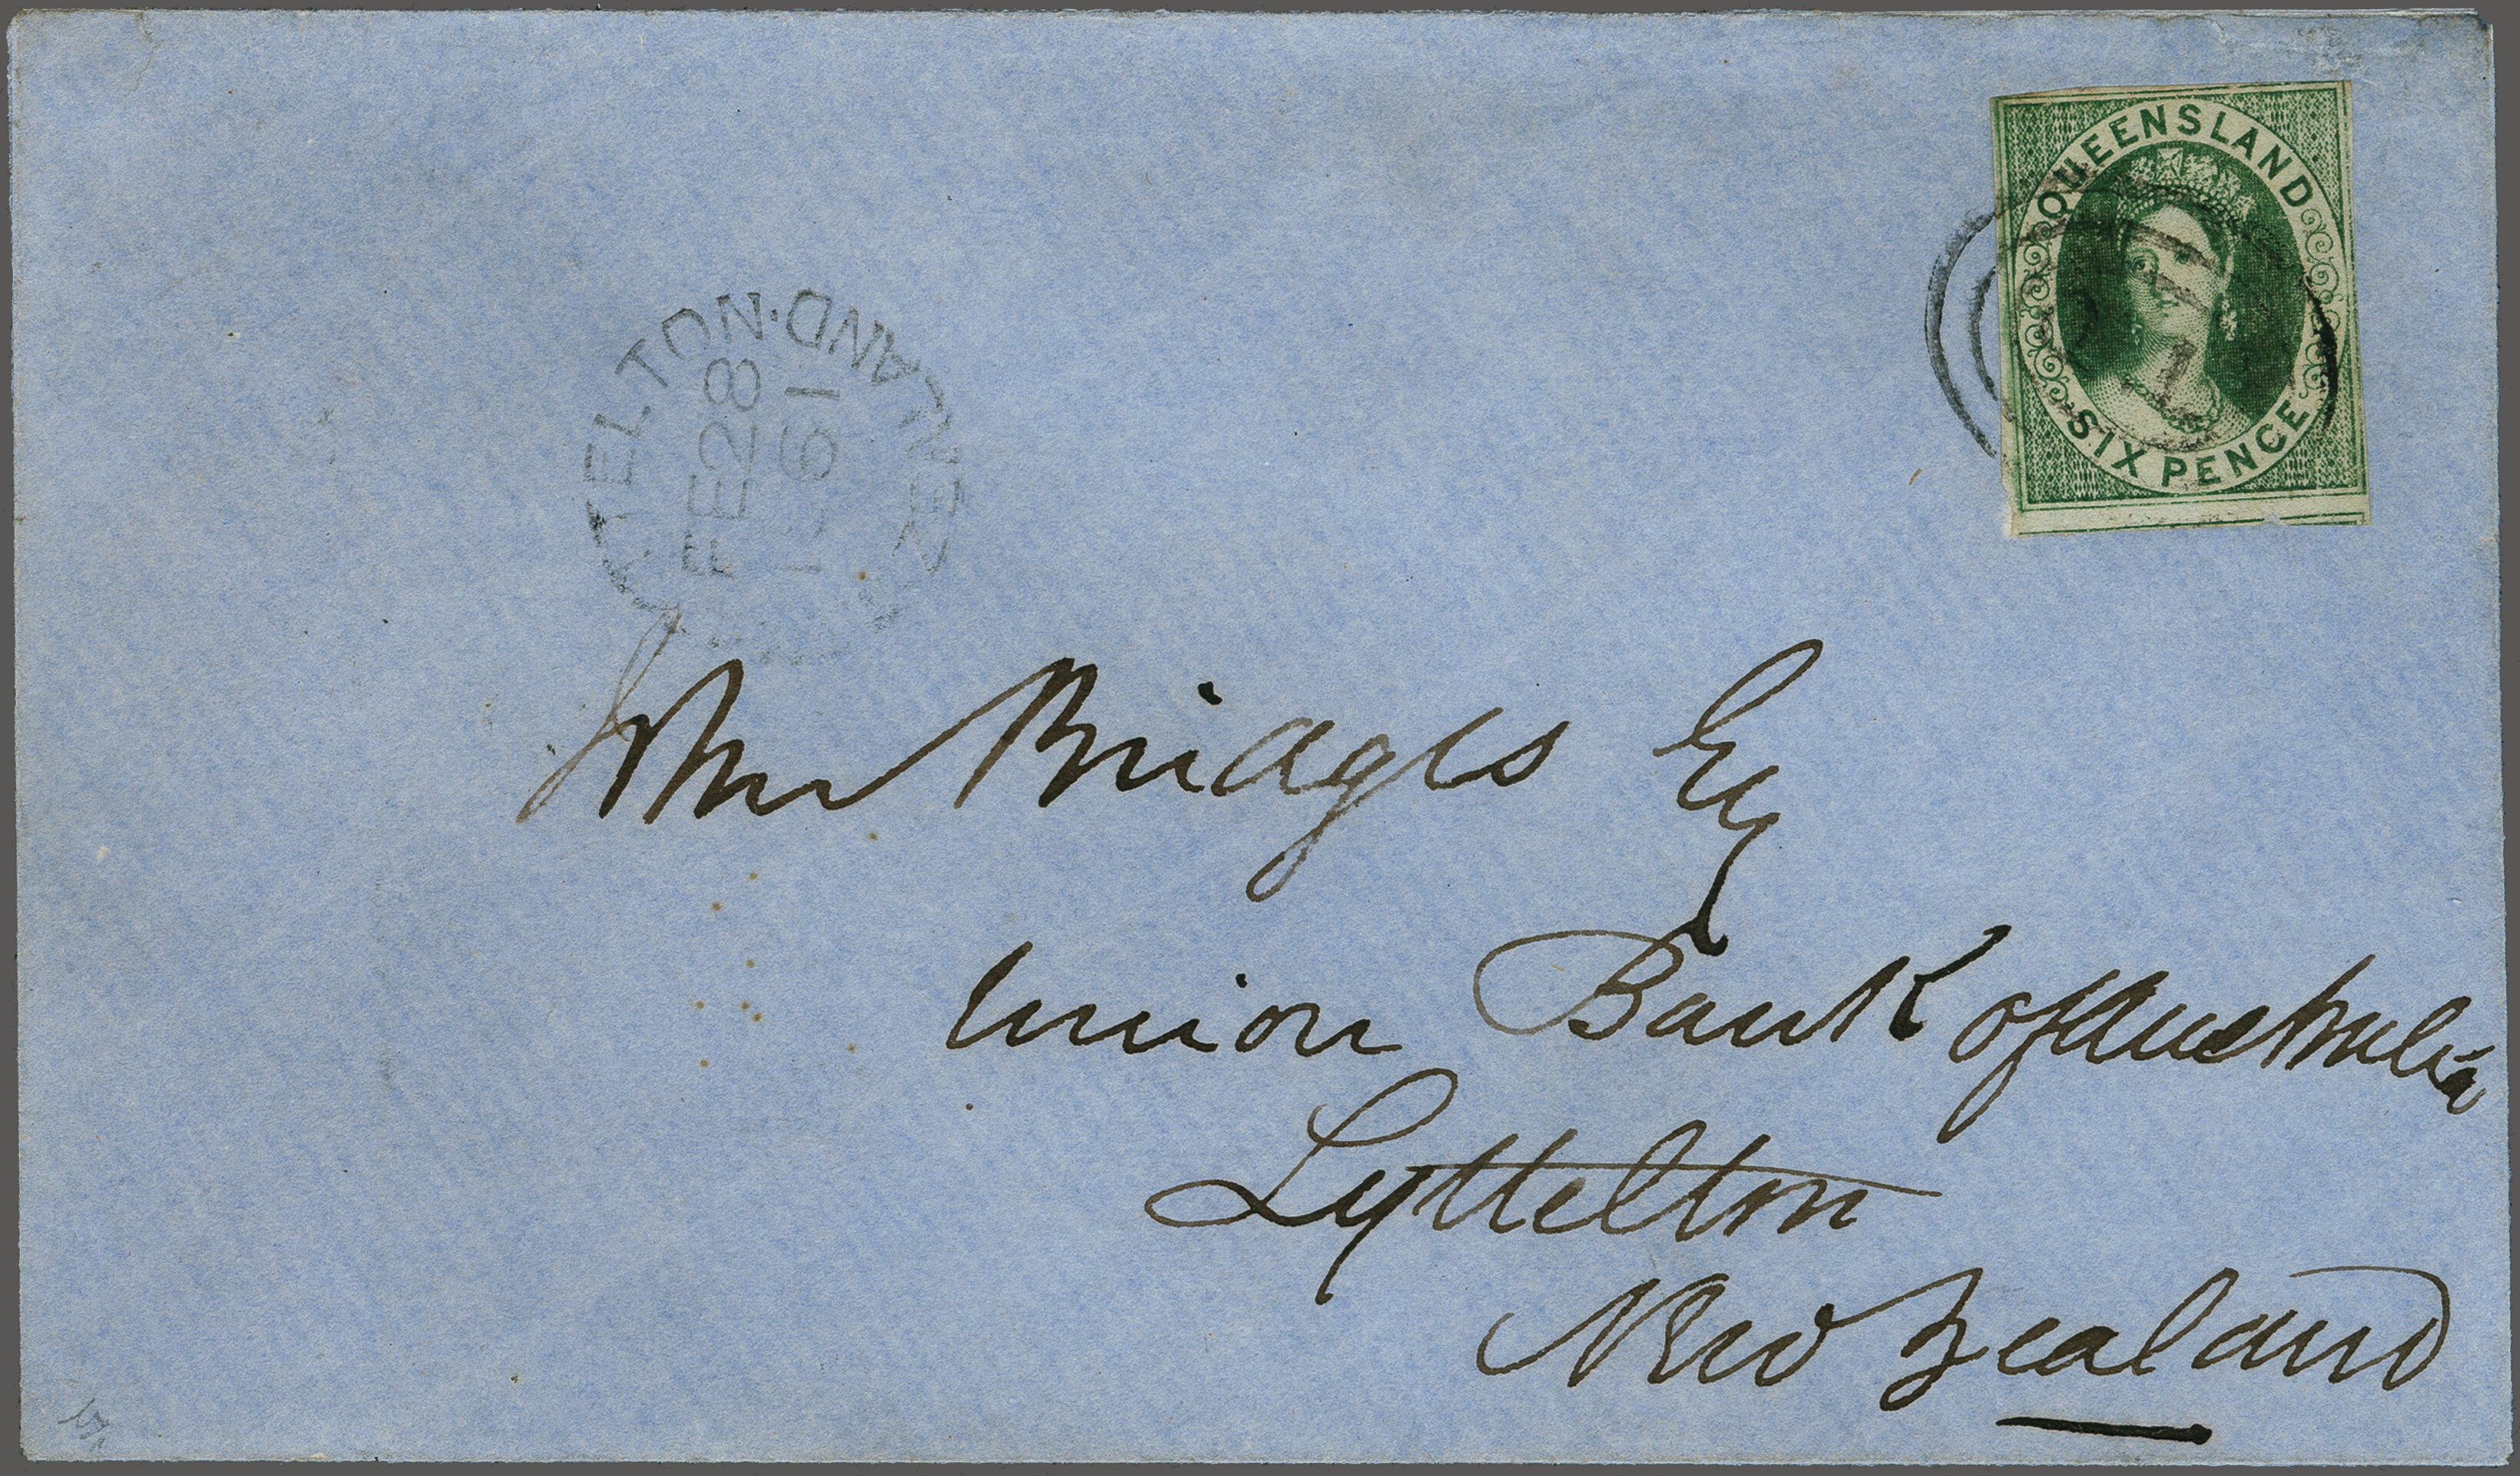 QUEENSLAND
SIX PENCE
1
LYTTELTON·NEW ZEALAND
FE28
1861
John Bridges Esq
Union Bank of Australia
Lyttelton
New Zealand